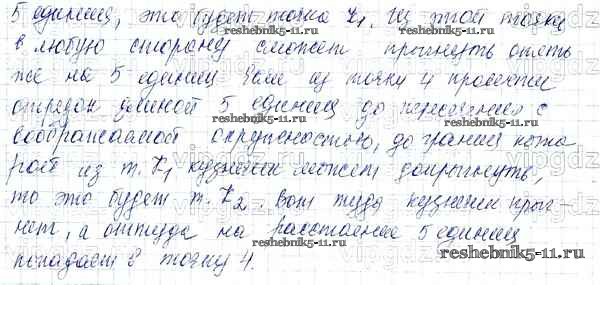 5 единиц, это будет точка К₁. Из этой точки
в любую сторону сможет прыгнуть опять
же на 5 единиц Если из точки 4 провести
отрезок длиной 5 единиц до пересечения с
воображаемой окружностью, до границ кото
рой из т. К₁ кузнечик может допрыгнуть,
то это будет т. К₂. Вот туда кузнечик прыг-
нет, а оттуда на расстояние 5 единиц
попадает в точку 4.
reshebnik5-11.ru
vipgdz